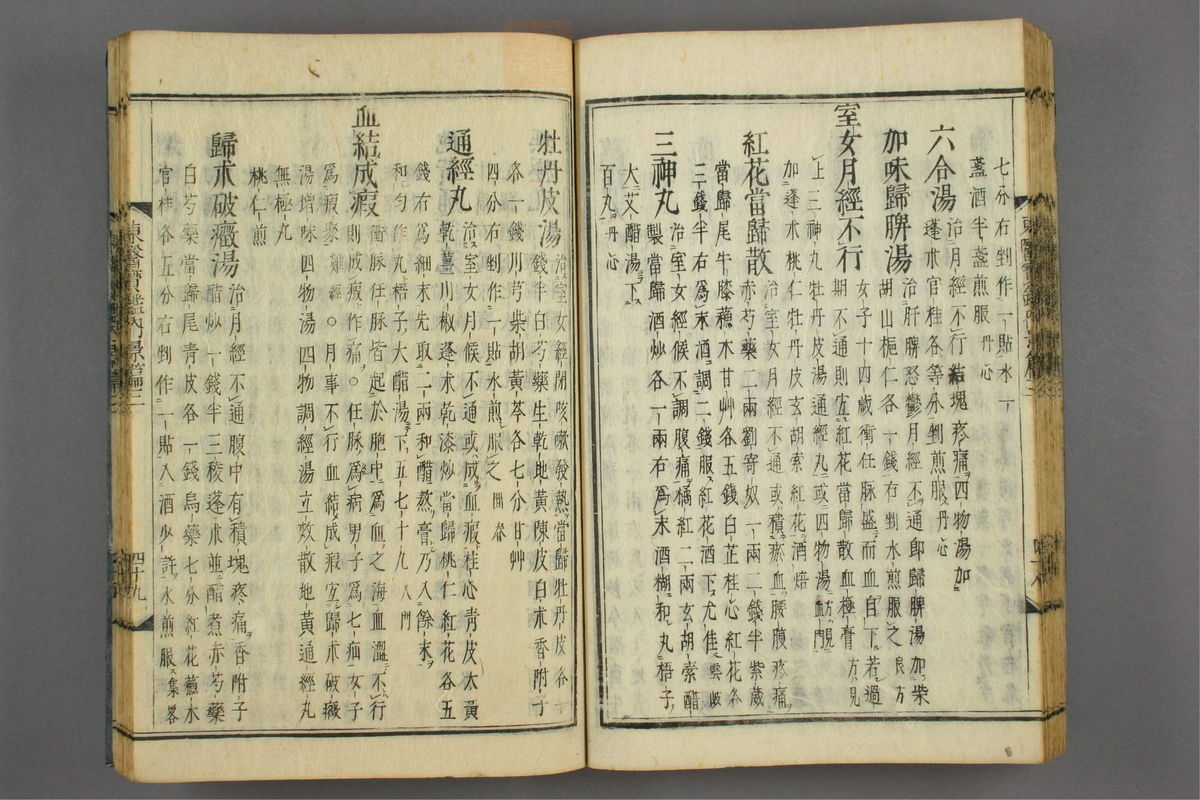 七分右剉作一貼水一
盞酒半盞煎服丹心
六合湯治月經不行結塊疼痛四物湯加
蓬朮官桂各等分剉煎服丹心
加味歸脾湯治肝脾怒鬱月經不通卽歸脾湯加柴
胡山梔仁各一錢右剉水煎服之良方
室女月經不行女子十四歲衝任脉盛而血自下若過
期不通則宜紅花當歸散血極膏方見
上三神丸牡丹皮湯通經丸或四物湯方見血門
加蓬朮桃仁牡丹皮玄胡索紅花酒焙
紅花當歸散治室女月經不通或積瘀血腰腹疼痛
赤芍藥二兩劉寄奴一兩二錢半紫葳
當歸尾牛膝蘇木甘艸各五錢白芷桂心紅花各
三錢半右爲末酒調二錢服紅花酒下尤佳雲岐
三神丸治室女經候不調腹痛橘紅二兩玄胡索醋
製當歸酒炒各一兩右爲末酒糊和丸梧子
大艾醋湯下
百丸丹心
牡丹皮湯治室女經閉咳嗽發熱當歸牡丹皮各一
錢半白芍藥生乾地黃陳皮白朮香附子
各一錢川芎柴胡黃芩各七分甘艸
四分右剉作一貼水煎服之回春
通經丸治室女月候不通或成血瘕桂心靑皮大黃
乾薑川椒蓬朮乾漆炒當歸桃仁紅花各五
錢右爲細末先取二兩和醋熬膏乃入餘末
和勻作丸梧子大醋湯下五七十丸入門
血結成瘕衝脉任脉皆起於胞中爲血之海血澁不行
則成瘕作痛○任脉爲病男子爲七疝女子
爲瘕聚難經○月事不行血結成瘕宜歸朮破癥
湯增味四物湯四物調經湯立效散地黃通經丸
無極丸
桃仁煎
歸朮破癥湯治月經不通腹中有積塊疼痛香附子
醋炒一錢半三稜蓬朮並醋煮赤芍藥
白芍藥當歸尾靑皮各一錢烏藥七分紅花蘇木
官桂各五分右剉作一貼入酒少許水煎服集畧
四十九